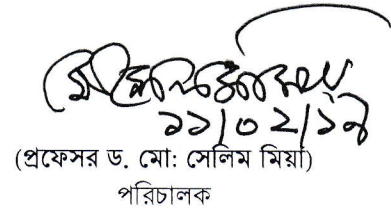 ১১/০২/১৯
(প্রফেসর ড. মো: সেলিম মিয়া)
পরিচালক